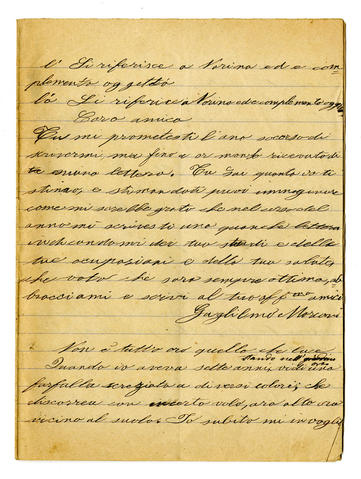 l' Si riferisce a Norina ed e com
plemento oggetto
la Si riferice a Norina ed e complemento ogge
Cara amica
Tu mi promettesti l'ano scorso di
scrivermi ma fino a or mando ricevuto di
te nenuna lettera. Tu sai quanto io ti
stimavo e stimandoti puoi immaginare
come mi sarebbe grato che nel corso del
anno mi scrivesti una qualche lettera
indicandomi dei tuo studi e delle
tue ocupasioni e della tua salute
che volio che sara sempre ottima, ab
bracciami e scrivi al tuo aff.mo amico
Guglielmo Marconi
Non è tutto oro quello che luce.
stando nell'giardino
Quando io aveva sette anni, vidi una
farfalla screziata a diversi colori, che
discorreva con incerto volo, ora alto ora
vicino al suolo. Io subito mi invogli